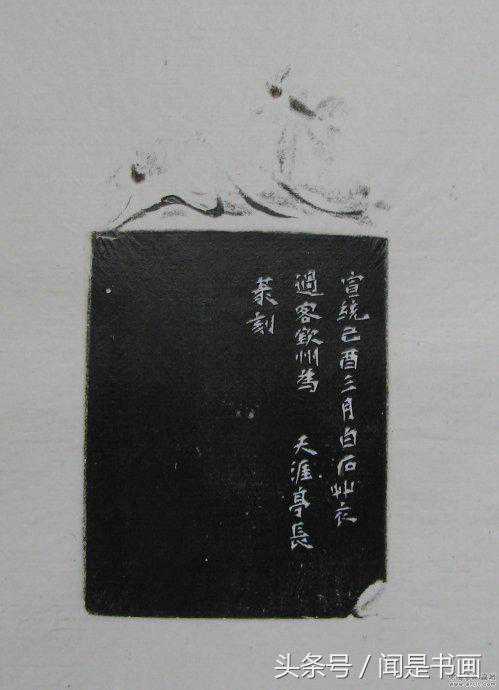 宣統己酉三月白石艸衣
過客欽州為 天涯亭長
篆刻
头条号 / 闻是书画